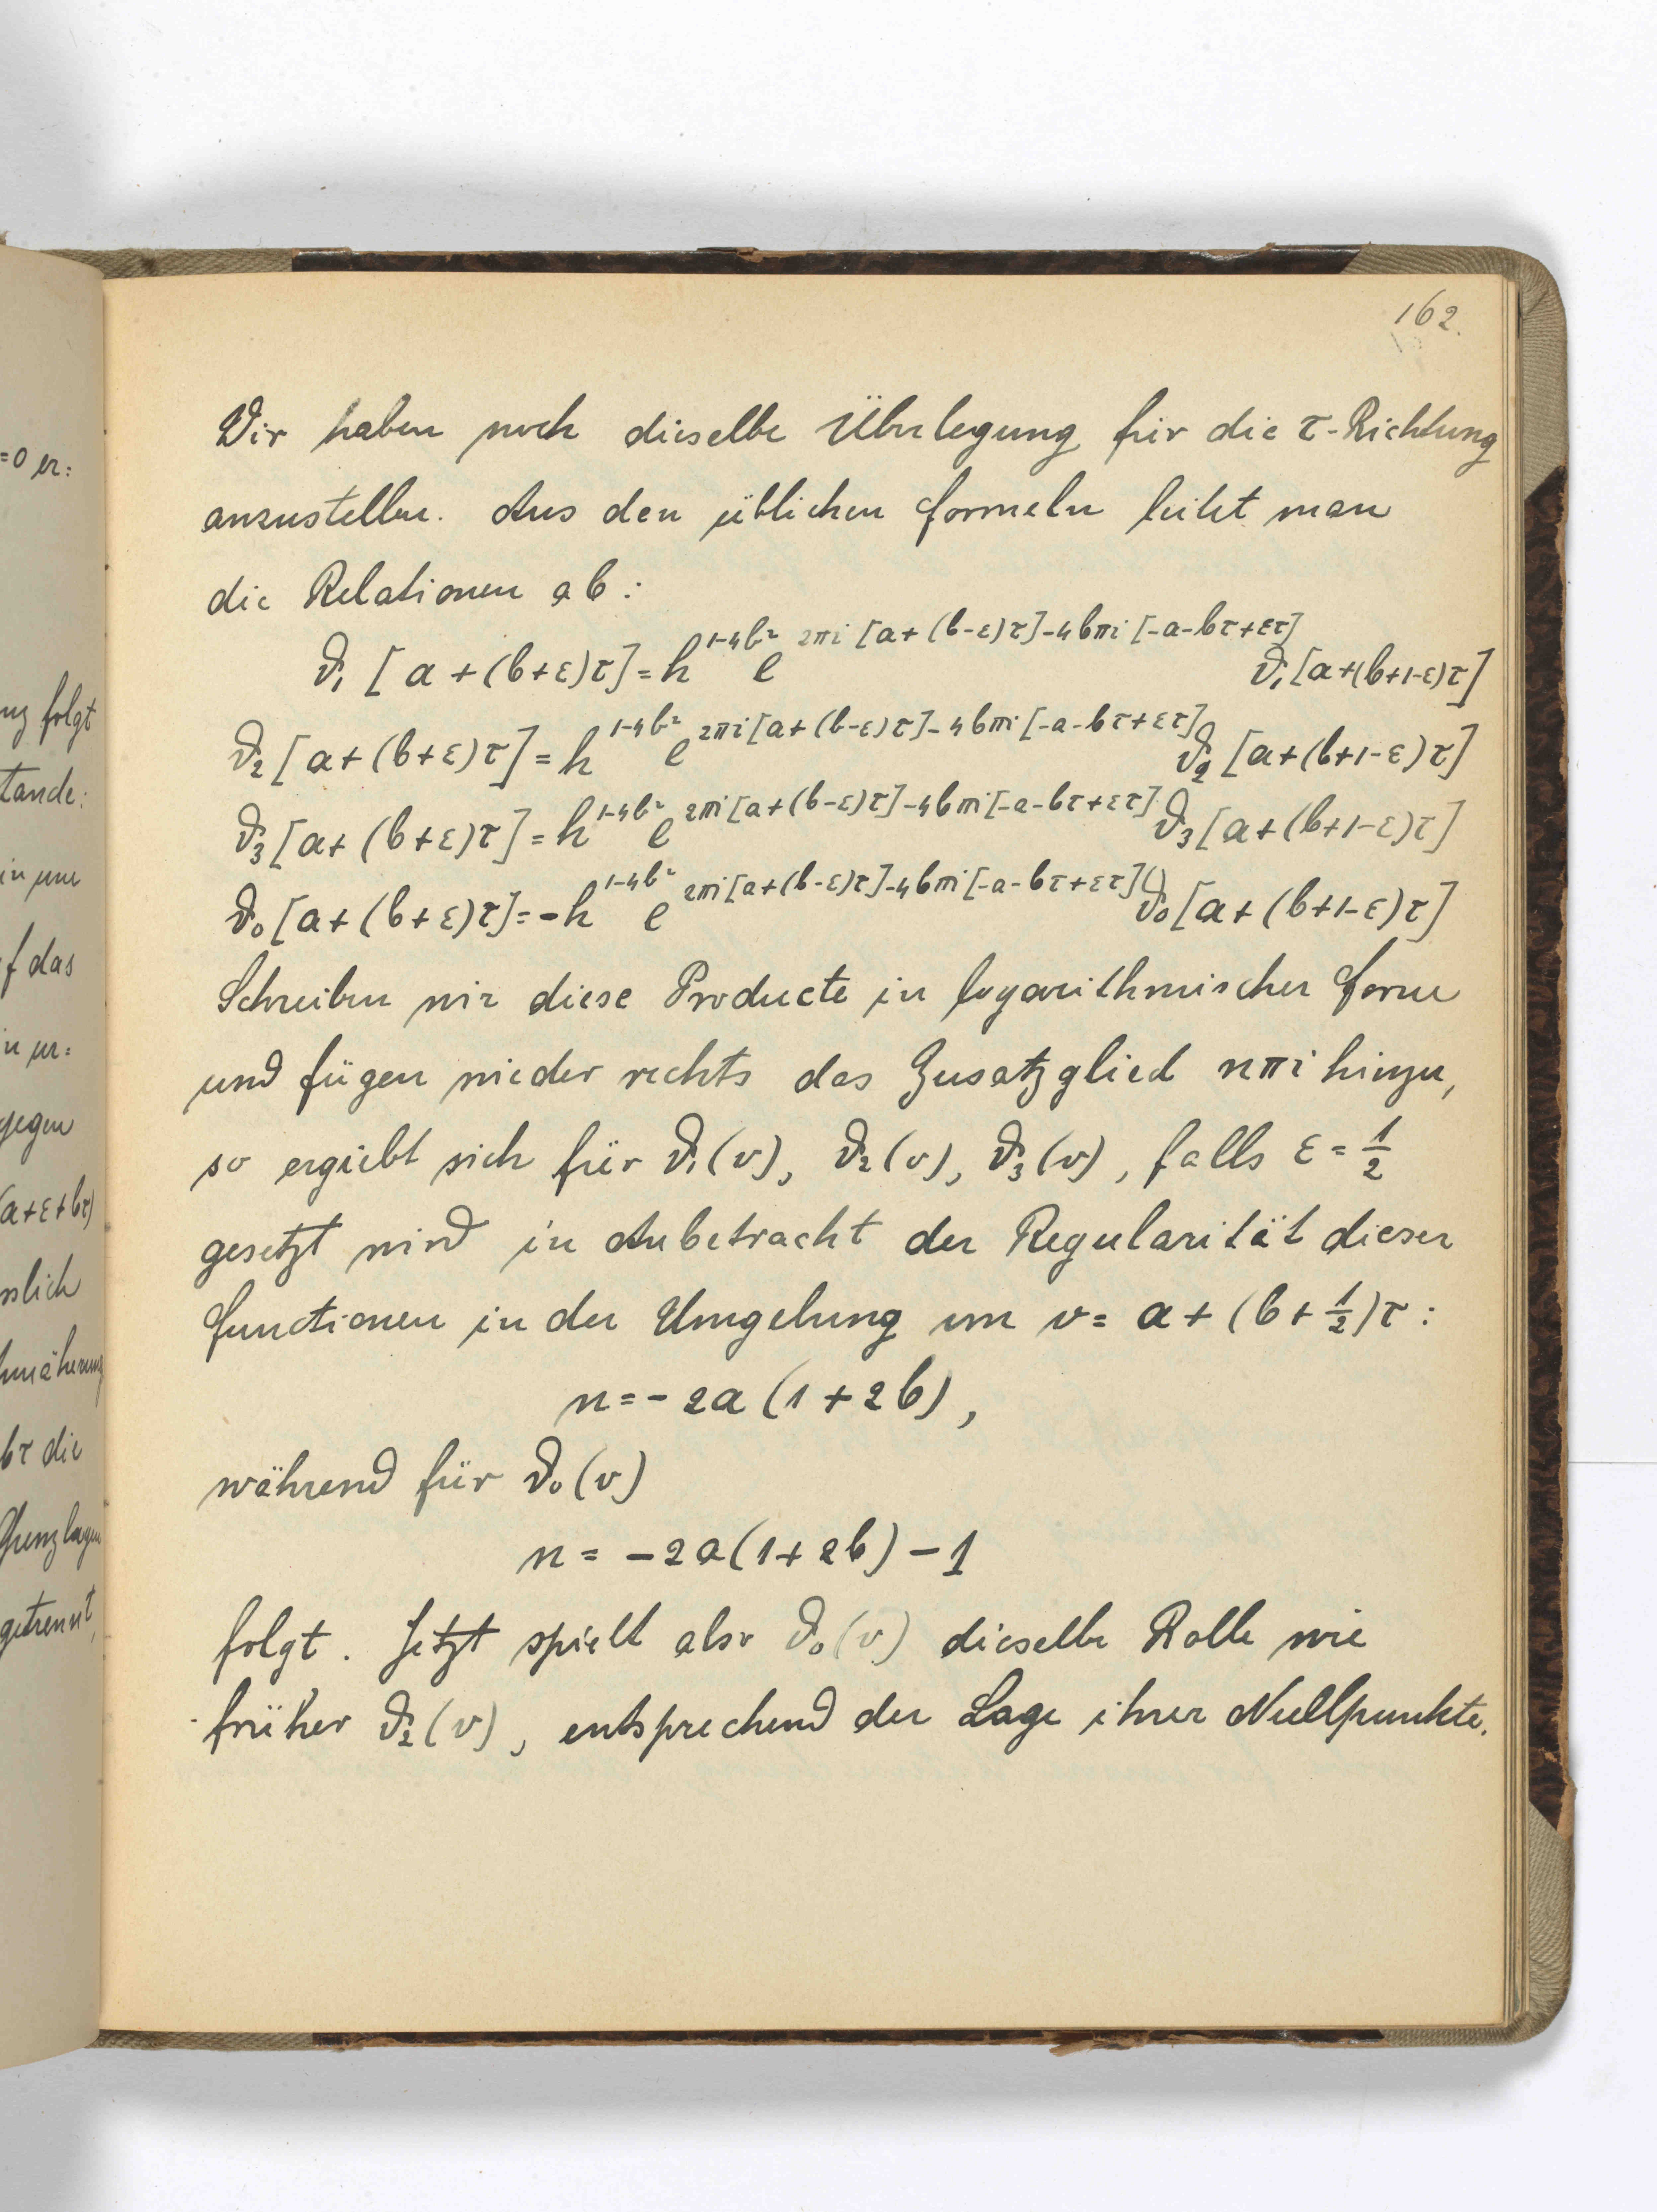 162.
Wir haben noch dieselbe Überlegung für die τ-Richtung
anzustellen. Aus den üblichen Formeln leitet man
die Relationen ab:
ϑ₁ [a + (b+ε)τ] = h^{1-4b²} e^{2πi [a+(b-ε)τ]-4bπi [-a-bτ+ετ]} ϑ₁[a+(b+1-ε)τ]
ϑ₂[a+(b+ε)τ] = h^{1-4b²} e^{2πi[a+(b-ε)τ]-4bπi[-a-bτ+ετ]} ϑ₂[a+(b+1-ε)τ]
ϑ₃[a+(b+ε)τ] = h^{1-4b²} e^{2πi[a+(b-ε)τ]-4bπi[-a-bτ+ετ]} ϑ₃[a+(b+1-ε)τ]
ϑ₀[a+(b+ε)τ] = -h^{1-4b²} e^{2πi[a+(b-ε)τ]-4bπi[-a-bτ+ετ]} ϑ₀[a+(b+1-ε)τ]
Schreiben wir diese Producte in logarithmischer Form
und fügen wieder rechts das Zusatzglied nπi hinzu,
so ergiebt sich für ϑ₁(v), ϑ₂(v), ϑ₃(v), falls ε = 1/2
gesetzt wird in Anbetracht der Regularität dieser
Functionen in der Umgebung um v = a + (b + 1/2)τ :
n = - 2a (1 + 2b),
während für ϑ₀(v)
n = -2a(1+2b) - 1
folgt. Jetzt spielt also ϑ₀(v) dieselbe Rolle wie
früher ϑ₂(v), entsprechend der Lage ihrer Nullpunkte.
=0 er:
folgt
tande:
f das
gegen
(a+ε+bτ)
bτ die
getrennt,